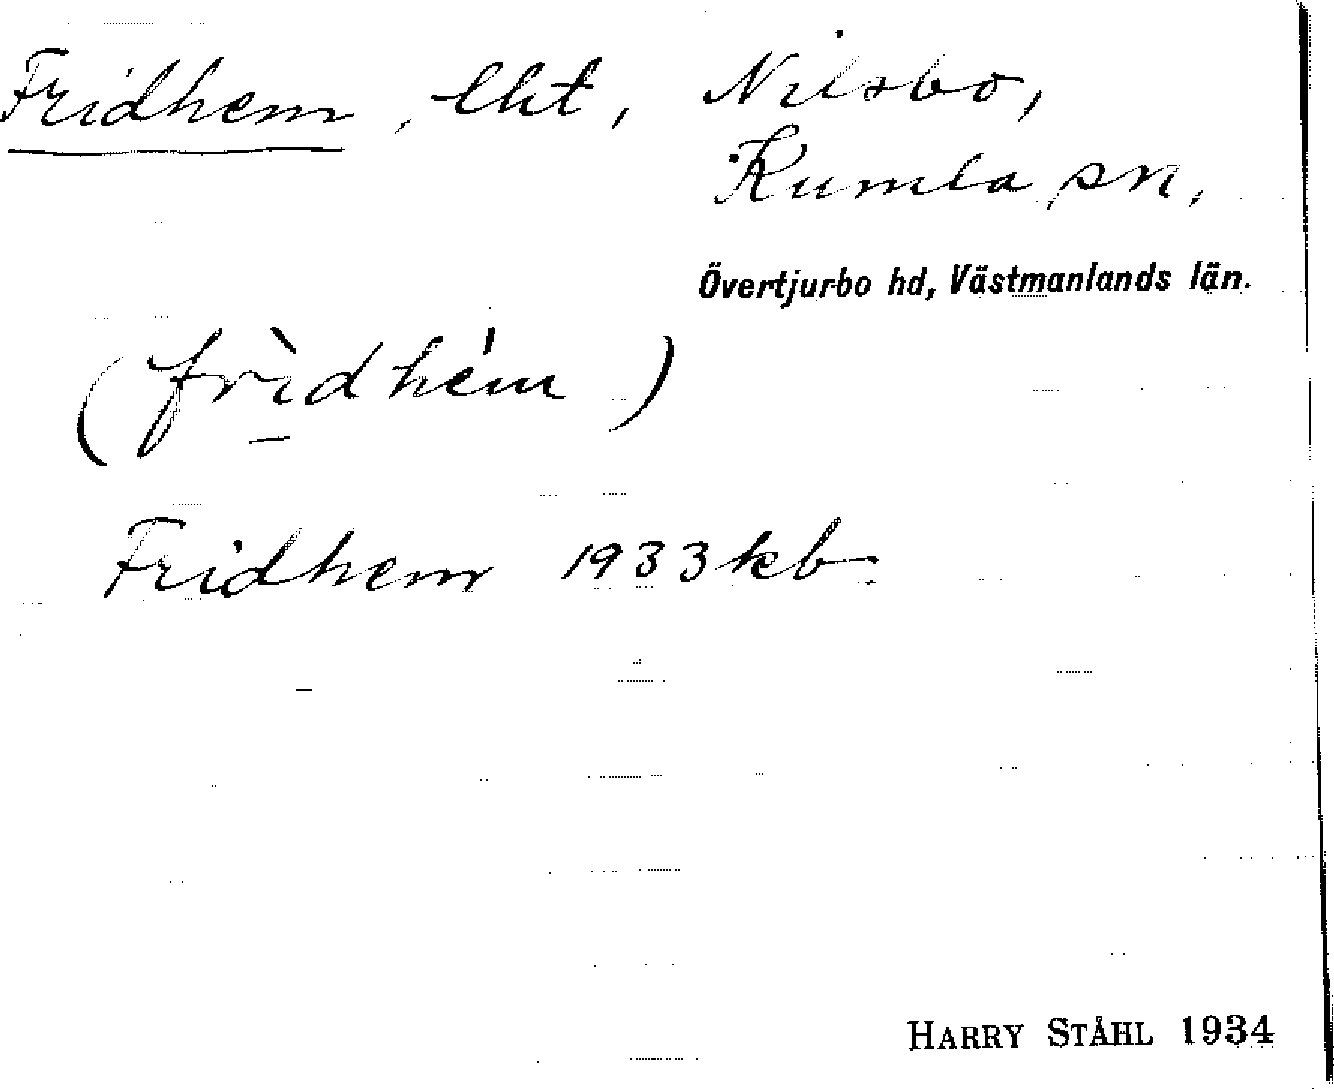 Fridhem, lht, Nilsbo,
Kumla sn,
Övertjurbo hd, Västmanlands län.
(frìdhém)
Fridhem 1933 kb.
HARRY STÅHL 1934